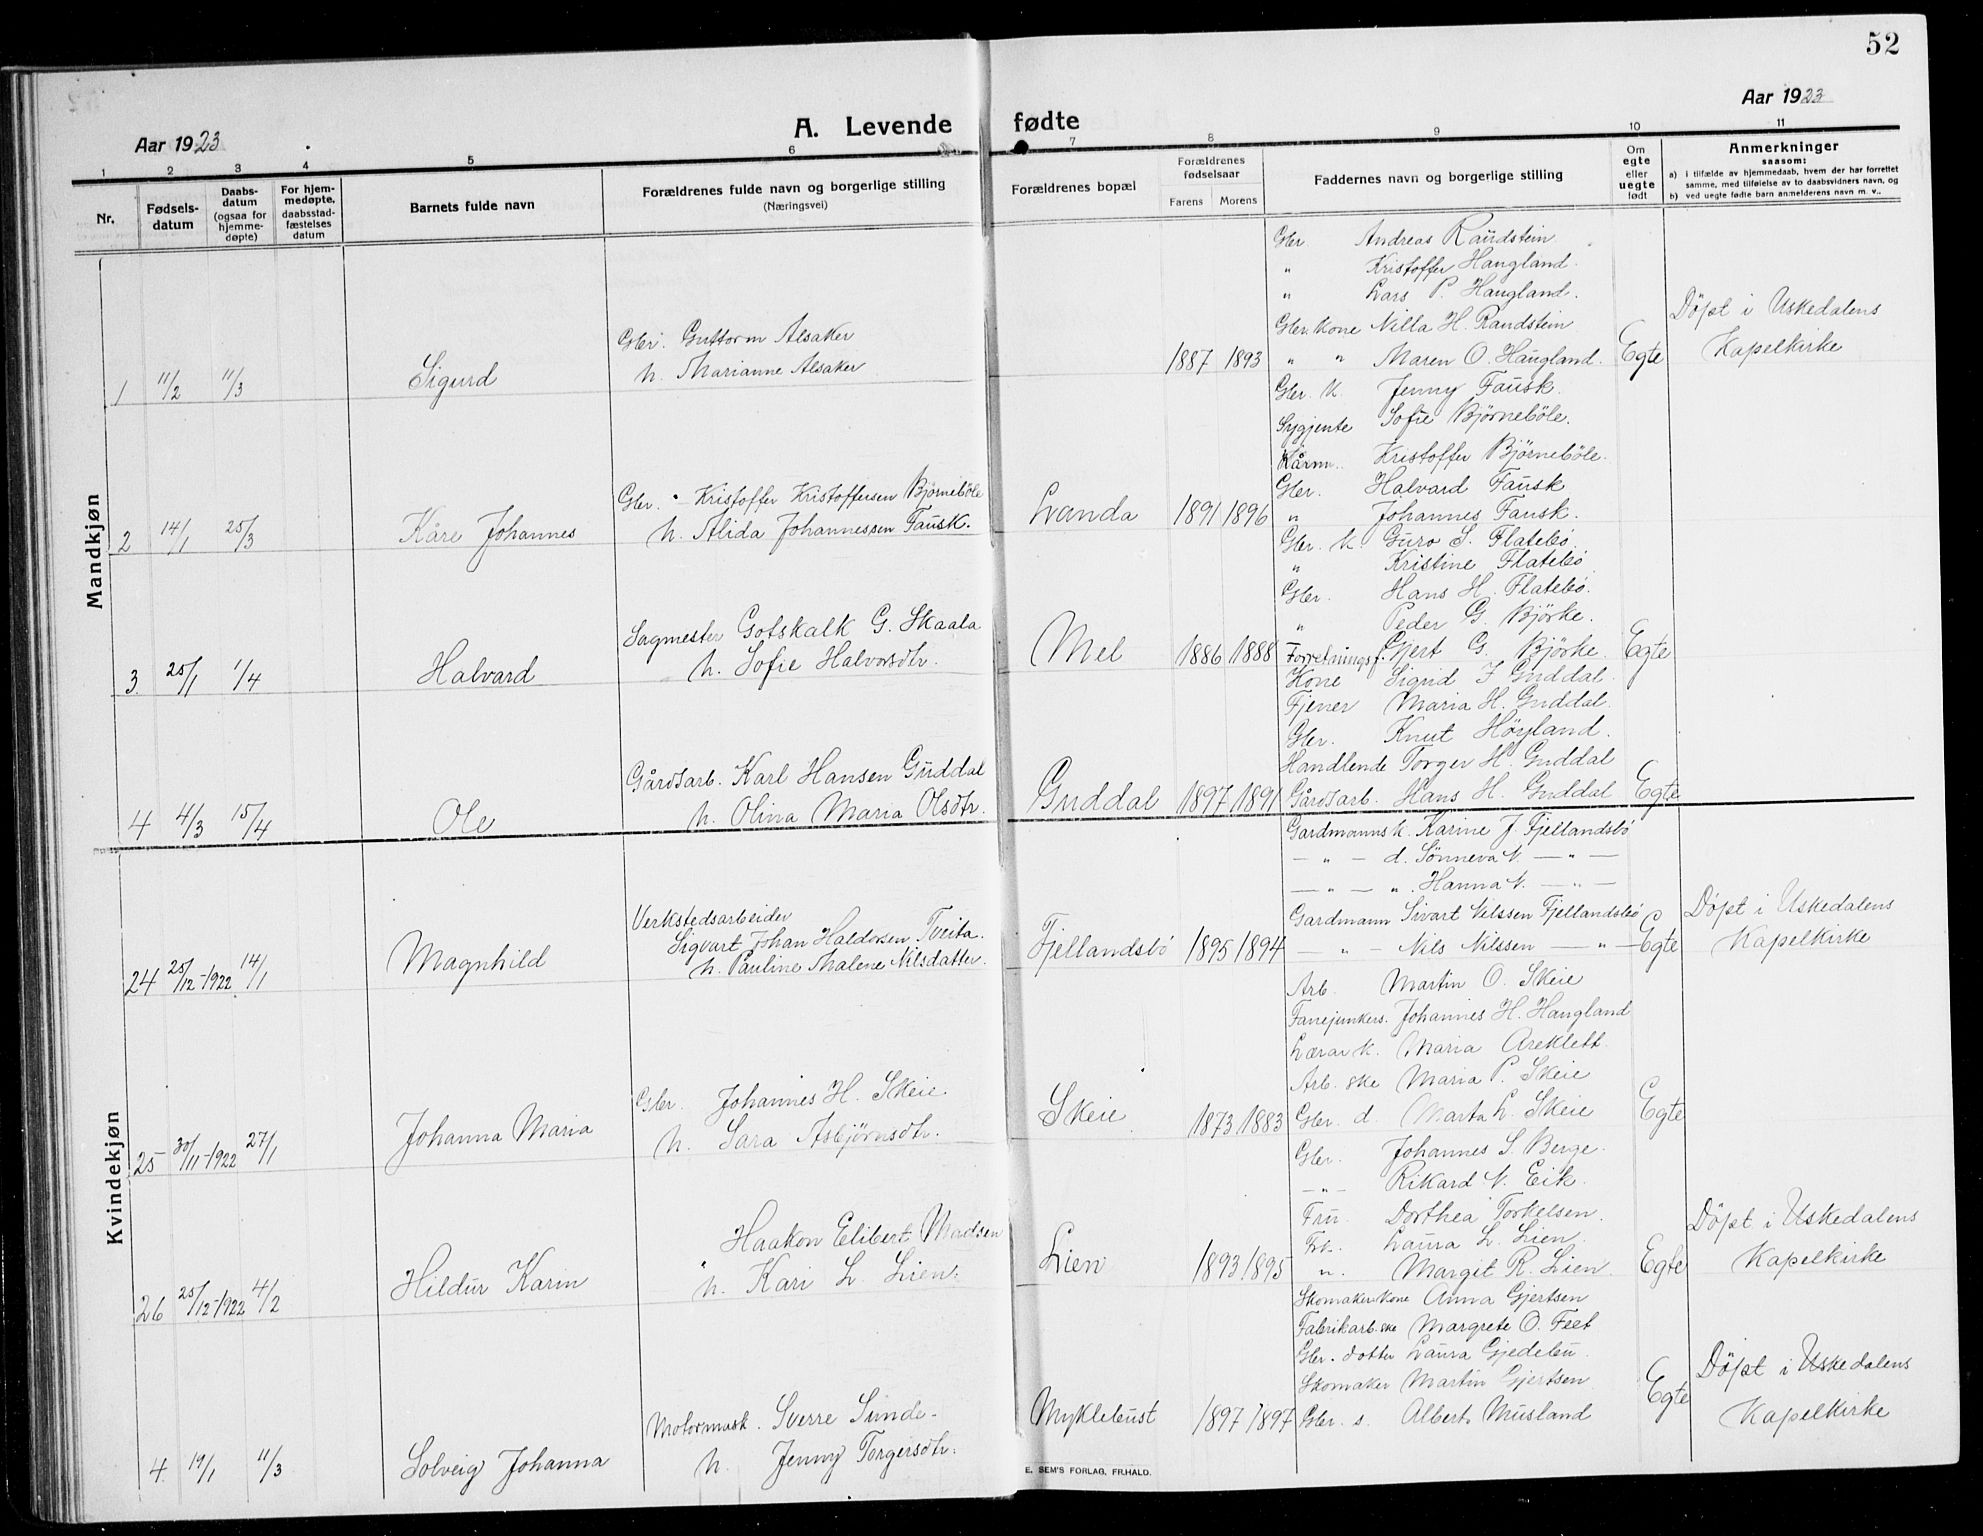 52
Aar 1923
A. Levende fødte
Aar 1923
1 2 3 4 5 6 7 8 9 10 11
Nr.
Fødsels-
datum
Daabs-
datum
(ogsaa for
hjemme-
døpte)
For hjem-
medøpte,
daabsstad-
fæstelses
datum
Barnets fulde navn
Forældrenes fulde navn og borgerlige stilling
(Næringsvei)
Forældrenes bopæl
Forældrenes
fødselsaar
Farens Morens
Faddernes navn og borgerlige stilling
Om
egte
eller
uegte
født
Anmerkninger
saasom:
a) i tilfælde av hjemmedaab, hvem der har forrettet
samme, med tilføielse av to daabsvidners navn, og
b) ved uegte fødte barn anmelderens navn m. v..
Mandkjøn
1 11/2 11/3 Sigurd
Gbr. Guttorm Alsaker
h. Marianne Alsaker
1887 1893
Gbr. Andreas Raudstein
" Kristoffer Haugland.
" Lars P. Haugland.
Gbr. Kone Nilla H. Raudstein
" " Maren O. Haugland.
Egte
Døpt i Uskedalens
Kapelkirke
2 14/1 25/3 Kåre Johannes
Gbr. Kristoffer Kristoffersen Bjørnebøle
h. Alida Johannessen Fausk.
Landa 1891 1896
Gbr. K. Jenny Fausk.
Sygjente Sofie Bjørnebøle.
Kårm. Kristoffer Bjørnebøle.
Gbr. Halvard Fausk
" Johannes Fausk.
3 25/1 1/4 Halvard
Sagmester Gotskalk G. Skaala
h. Sofie Halvorsdtr.
Mel 1886 1888
Gbr. K. Guro S. Flatebø
" Kristine Flatebø
Gbr. Hans H. Flatebø.
" Peder G. Bjørke.
Forretningsf. Gjert G. Bjørke.
Egte
4 4/3 15/4 Ole
Gårdsarb. Karl Hansen Guddal
h. Olina Maria Olsdtr.
Guddal 1897 1891
Kone Sigrid J Guddal.
Tjener Maria H. Guddal.
Gbr. Knut Høyland.
Handlende Torger H. Guddal
Gårdsarb. Hans H. Guddal
Egte
Kvindekjøn
24 25/12-1922 14/1 Magnhild
Verkstedsarbeider
Sigvart Johan Haldorsen Tveita.
h. Pauline Malene Nilsdatter.
Fjellandsbø 1895 1894
Gardmanns k. Karine J. Fjellandsbø
— " — d. Sønneva N. — " —
— " — ". Hanna N. — " —
Gardmann Sivart Nilssen Fjellandsbø
— " — Nils Nilssen — " —
Egte
Døpt i Uskedalens
Kapelkirke
25 30/11-1922 27/1 Johanna Maria
Gbr. Johannes H. Skeie.
h. Sara Asbjørnsdtr.
Skeie 1873 1883
Arb. Martin O. Skeie
Fanejunkers. Johannes H. Haugland
Lærar k. Maria Areklett.
Arb. ske Maria P. Skeie
Gbr. d. Marta L. Skeie
Egte
26 25/12-1922 4/2 Hildur Karin
Haakon Elibert Madsen
h. Kari L. Lien.
Lien 1893 1895
Gbr. Johannes S. Berge.
— " — Rikard N. Eik.
Fru. Dorthea Torkelsen.
Frk. Laura L. Lien.
". Margit R. Lien.
Egte
Døpt i Uskedalens
Kapelkirke
4. 19/1 11/3 Solveig Johanna
Motormask. Sverre Sunde.
h. Jenny Torgersdtr.
Myklebust 1897 1897
Skomaker kone Anna Gjertsen
Fabrikarb. ske Margrete O. Feet
Gbr. dotter Laura Gjedebu.
Skomaker Martin Gjertsen
Gbr. s. Albert Musland
Egte
Døpt i Uskedalens
Kapelkirke
E. SEM'S FORLAG, FR.HALD.